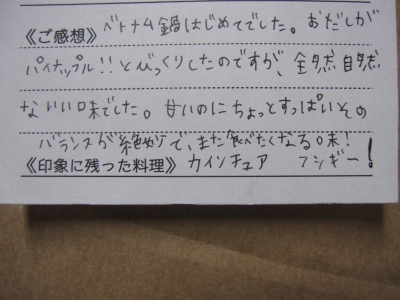 《ご感想》 ベトナム鍋はじめてでした。おだしが
パイナップル!!とびっくりしたのですが、全然自然
ないい味でした。甘いのにちょっとすっぱいその
バランスが絶妙で、また食べたくなる味!
《印象に残った料理》 カインチュア フンギー!